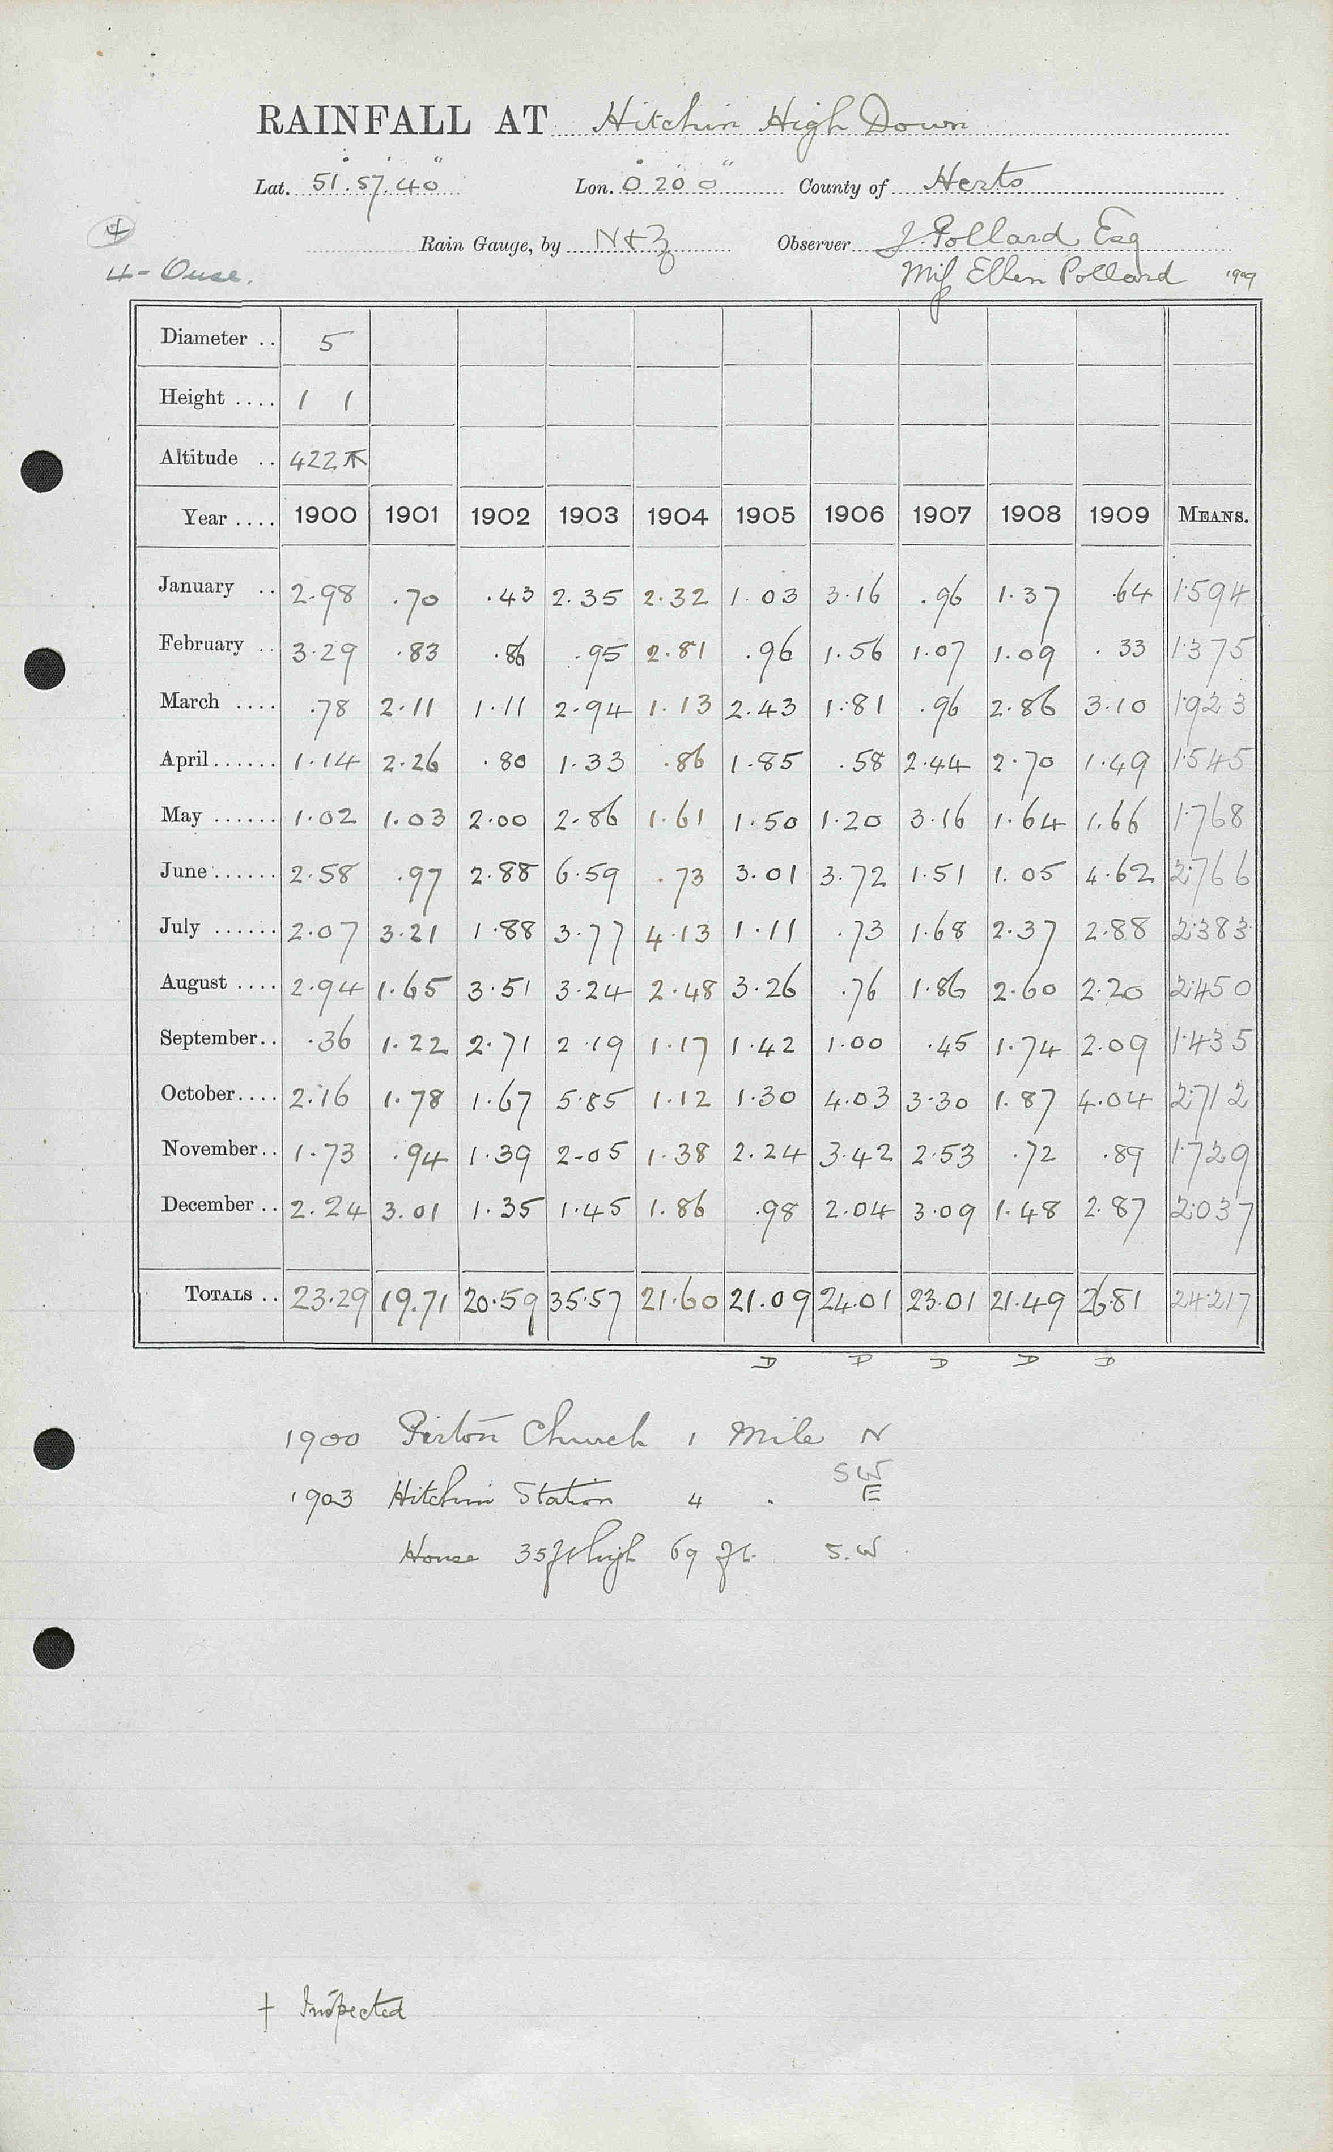 RAINFALL AT Hitchin High Down
Lat. 51° 57' 40" Lon. 0° 20' 0" County of Herts
Rain Gauge, by N & Z Observer J. Pollard Esq
4 - Ouse. Miss Ellen Pollard 1909
Diameter .. 5
Height .... 1 1
Altitude .. 422
Year .... 1900 1901 1902 1903 1904 1905 1906 1907 1908 1909 MEANS.
January .. 2.98 .70 .43 2.35 2.32 1.03 3.16 .96 1.37 .64 1.594
February .. 3.29 .83 .86 .95 2.81 .96 1.56 1.07 1.09 .33 1.375
March .... .78 2.11 1.11 2.94 1.13 2.43 1.81 .96 2.86 3.10 1.923
April...... 1.14 2.26 .80 1.33 .86 1.85 .58 2.44 2.70 1.49 1.545
May ...... 1.02 1.03 2.00 2.86 1.61 1.50 1.20 3.16 1.64 1.66 1.768
June ...... 2.58 .97 2.88 6.59 .73 3.01 3.72 1.51 1.05 4.62 2.766
July ...... 2.07 3.21 1.88 3.77 4.13 1.11 .73 1.68 2.37 2.88 2.383
August .... 2.94 1.65 3.51 3.24 2.48 3.26 .76 1.86 2.60 2.20 2.450
September.. .36 1.22 2.71 2.19 1.17 1.42 1.00 .45 1.74 2.09 1.435
October.... 2.16 1.78 1.67 5.85 1.12 1.30 4.03 3.30 1.87 4.04 2.712
November.. 1.73 .94 1.39 2.05 1.38 2.24 3.42 2.53 .72 .89 1.729
December .. 2.24 3.01 1.35 1.45 1.86 .98 2.04 3.09 1.48 2.87 2.037
TOTALS .. 23.29 19.71 20.59 35.57 21.60 21.09 24.01 23.01 21.49 26.81 24.217
D D D D D
1900 Pirton Church 1 Mile N
SW
1903 Hitchin Station 4 " E
House 35ft high 69 ft. S.W
† Inspected